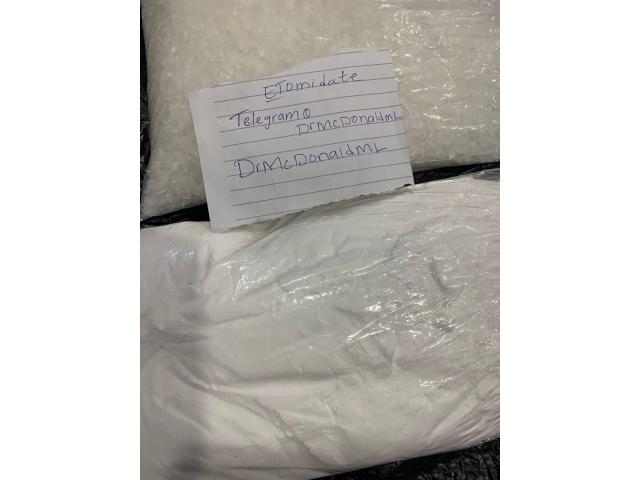 ETomidate
Telegram@
DrMcDonaldML
DrMcDonaldML